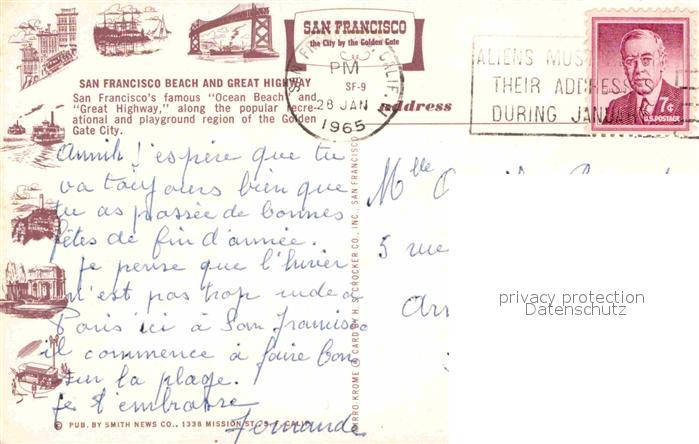 SAN FRANCISCO
the City by the Golden Gate
PM
SF-9
28 JAN
1965
ALIENS MUS
THEIR ADDRESS
DURING JANUA
7¢
U.S. POSTAGE
SAN FRANCISCO BEACH AND GREAT HIGHWAY
San Francisco's famous "Ocean Beach" and
"Great Highway," along the popular recre-
ational and playground region of the Golden
Gate City.
address
Annik j'espère que tu
va toujours bien que
tu as passée de bonnes
fêtes de fin d'année.
Je pense que l'hiver
n'est pas trop rude à
Paris ici à San Francisco
il commence à faire bon
sur la plage.
Je t'embrasse
Fernande
Mlle
5 rue
Ar
MIRRO KROME ® CARD BY H. S. CROCKER CO., INC., SAN FRANCISCO
© PUB. BY SMITH NEWS CO., 1338 MISSION ST., S. F. CALIF.
privacy protection
Datenschutz